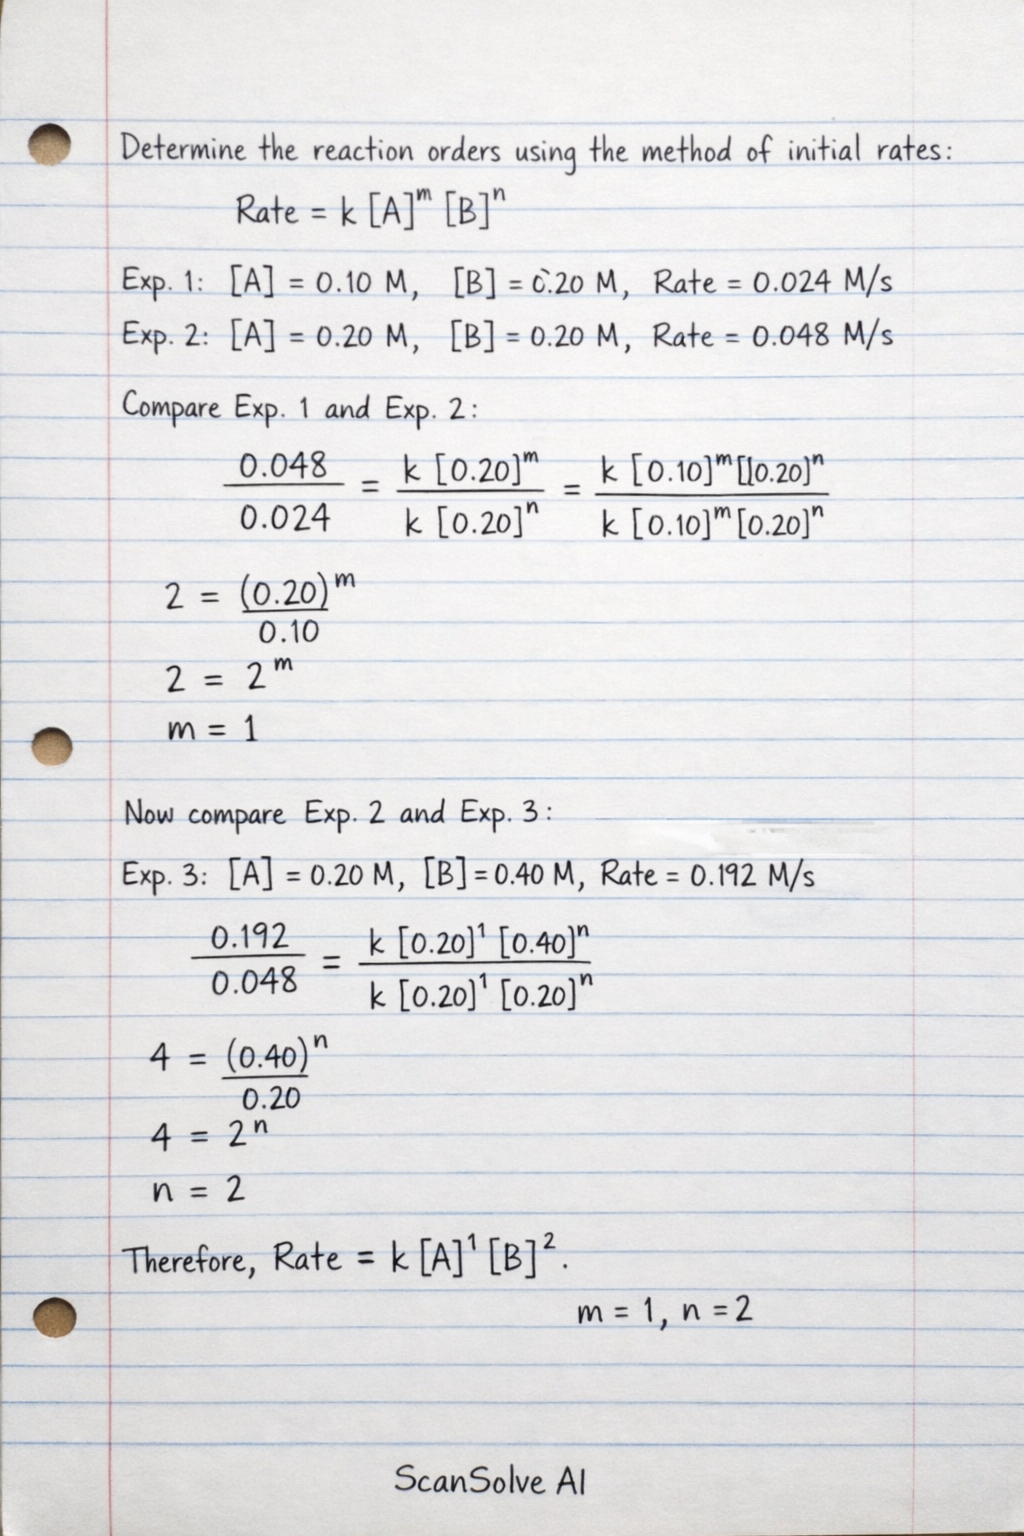 Determine the reaction orders using the method of initial rates:
Rate = k [A]^m [B]^n
Exp. 1: [A] = 0.10 M, [B] = 0.20 M, Rate = 0.024 M/s
Exp. 2: [A] = 0.20 M, [B] = 0.20 M, Rate = 0.048 M/s
Compare Exp. 1 and Exp. 2:
0.048 / 0.024 = k [0.20]^m / k [0.20]^n = k [0.10]^m [[0.20]^n / k [0.10]^m [0.20]^n
2 = (0.20)^m / 0.10
2 = 2^m
m = 1
Now compare Exp. 2 and Exp. 3:
Exp. 3: [A] = 0.20 M, [B] = 0.40 M, Rate = 0.192 M/s
0.192 / 0.048 = k [0.20]^1 [0.40]^n / k [0.20]^1 [0.20]^n
4 = (0.40)^n / 0.20
4 = 2^n
n = 2
Therefore, Rate = k [A]^1 [B]^2.
m = 1, n = 2
ScanSolve AI